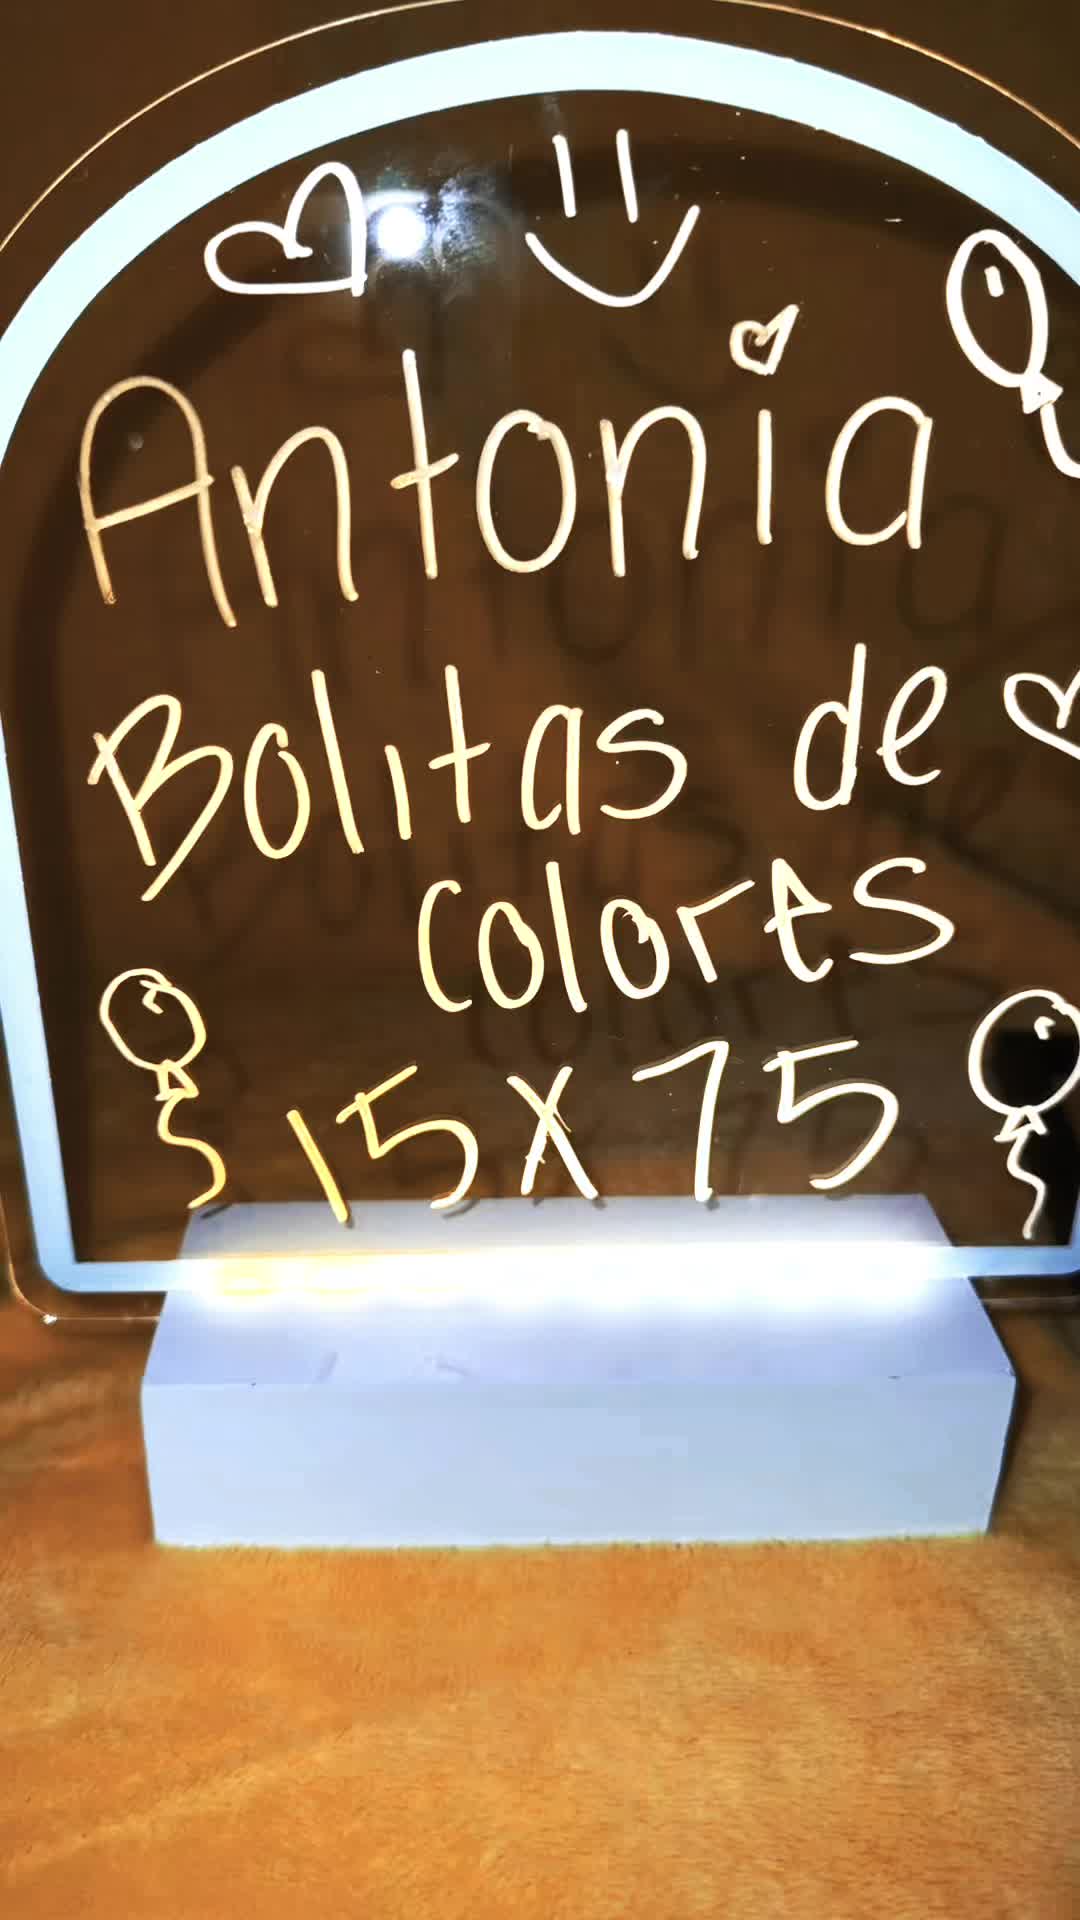 Antonia
Bolitas de
colores
15x75